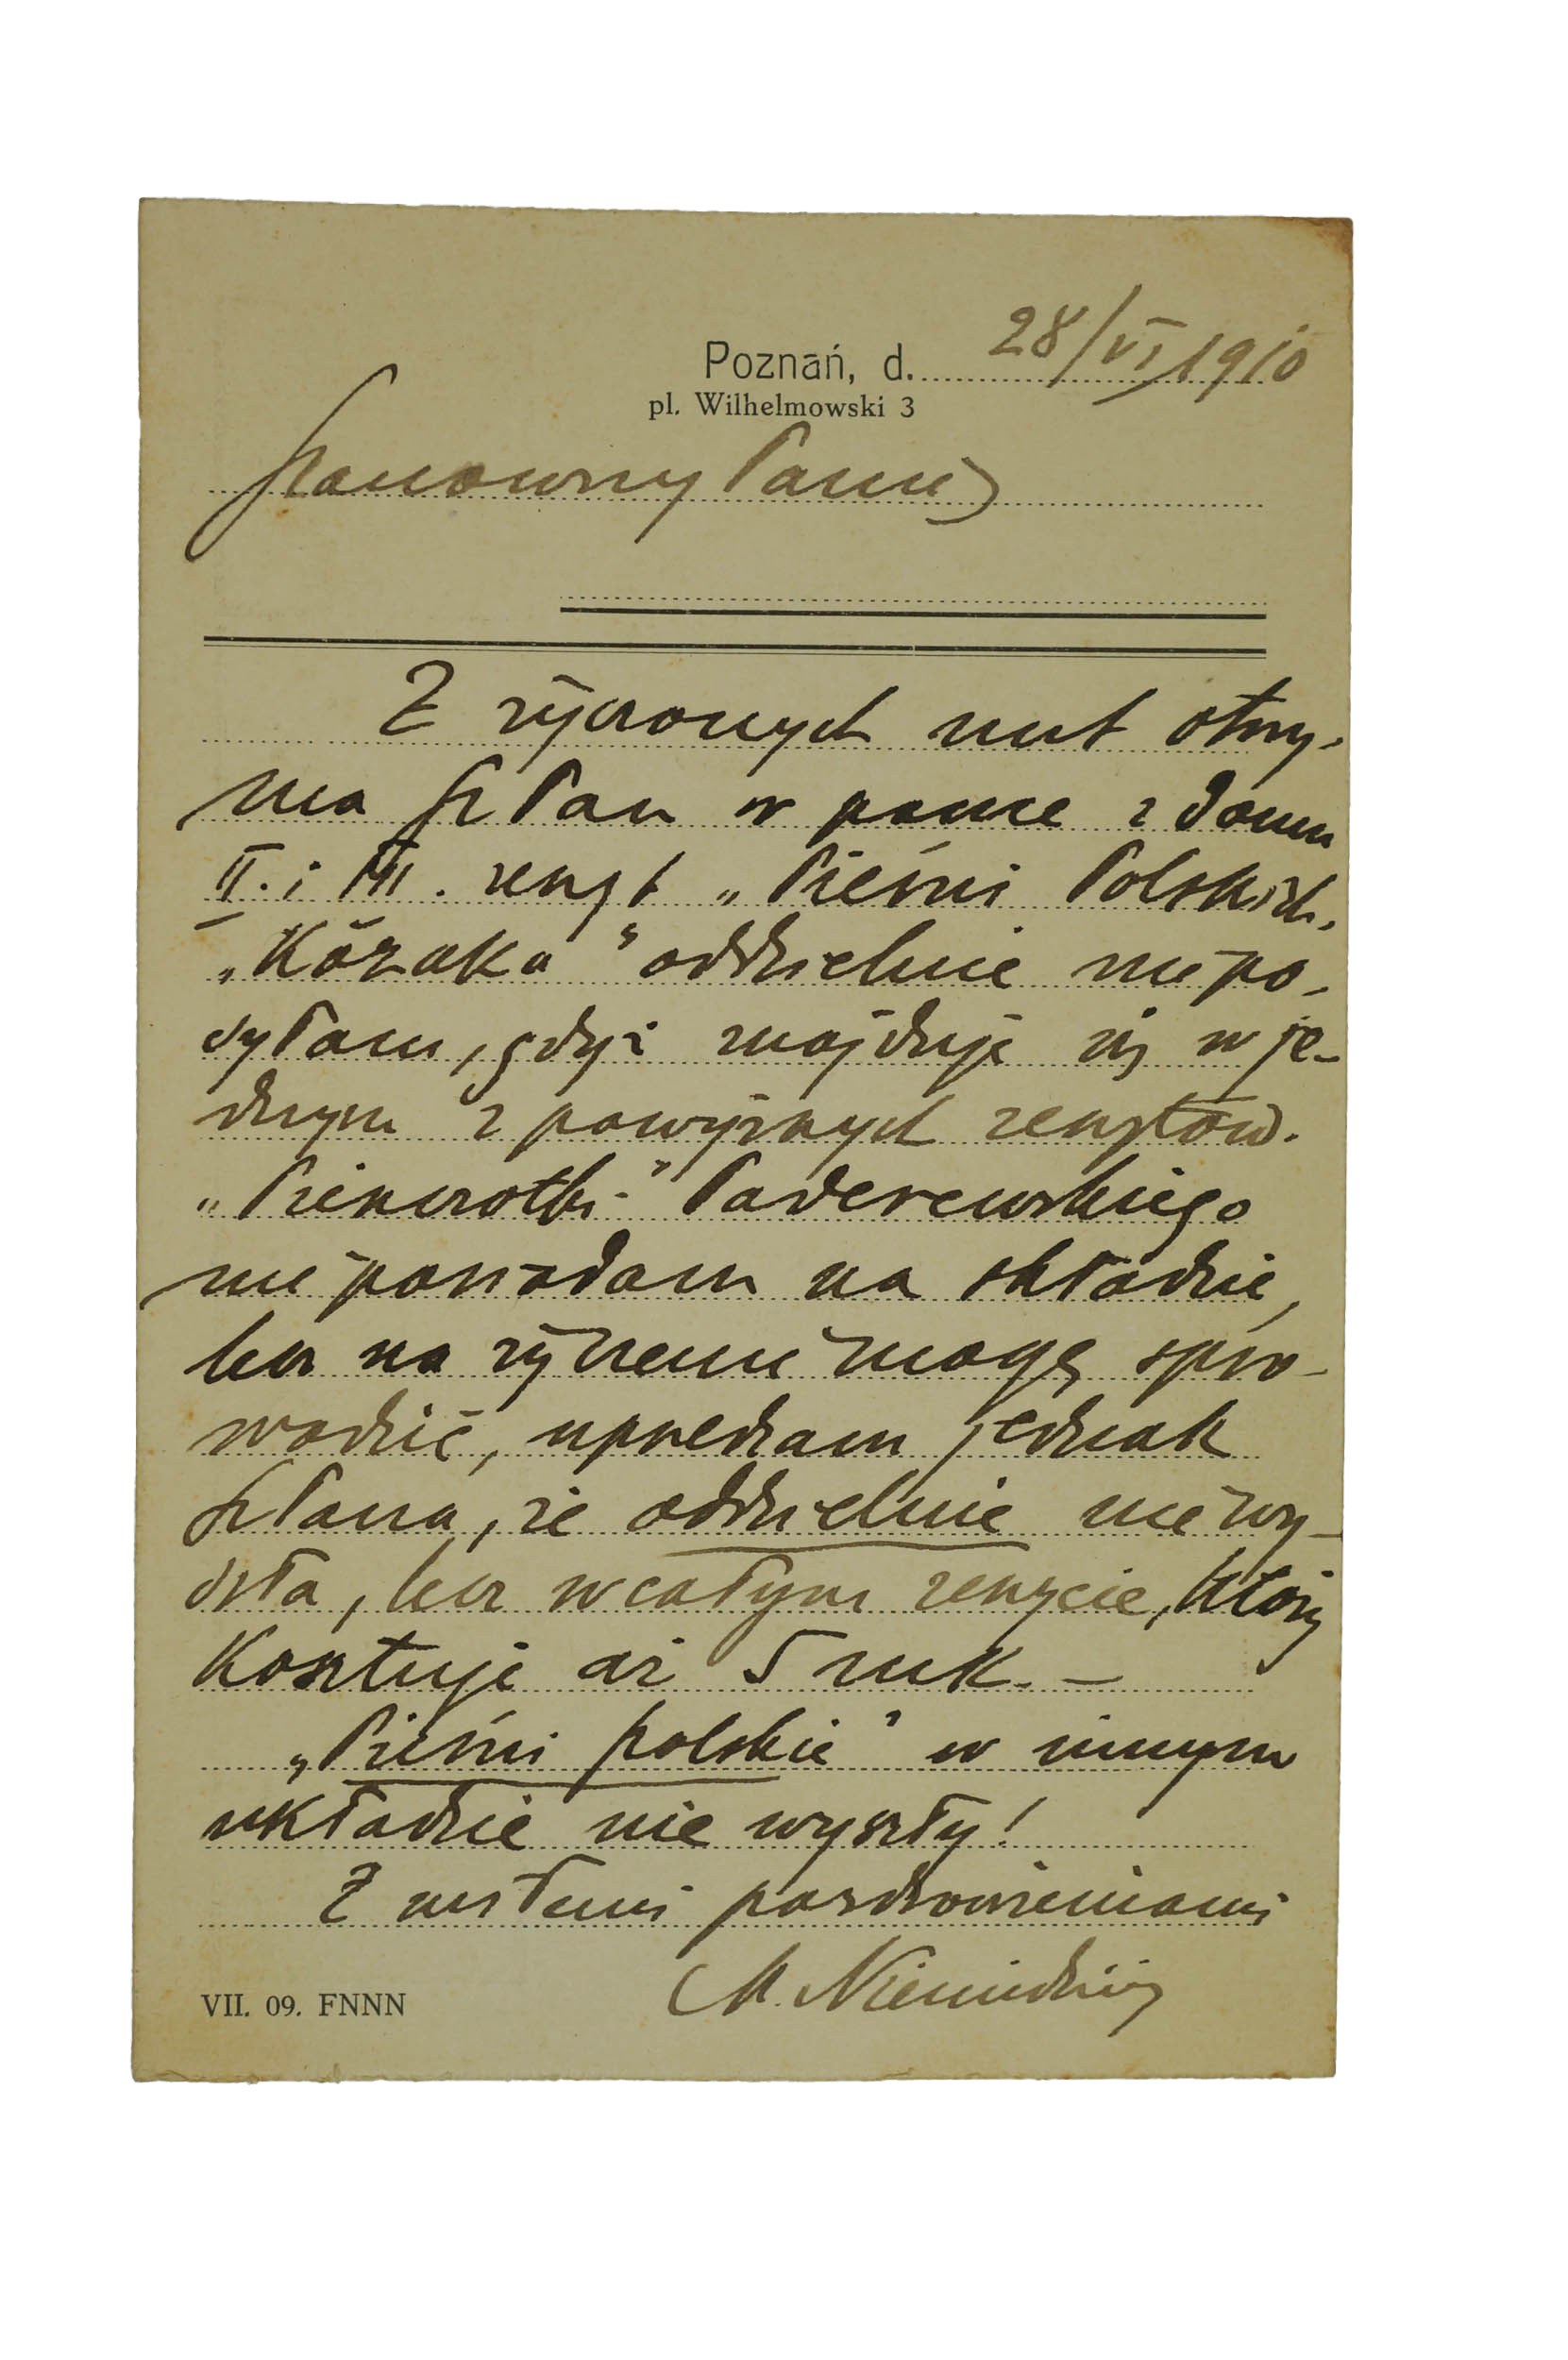 Poznań, d. 28/VI 1910
pl. Wilhelmowski 3
Szanowny Panie
Z życzonych nut otrzy-
ma Sz Pan w paczce z domu
II. i III. zeszyt „Pieśni Polskich.
„Kozaka" oddzielnie nie po-
syłam, gdyż znajduje się w je-
dnym z powyższych zeszytów.
„Piekność" Paderewskiego
nie posiadam na składzie,
lecz na życzenie mogę spro-
wadzić, uprzedzam jednak
Sz Pana, że oddzielnie nie wy-
szła, lecz w całym zeszycie, który
kosztuje aż 5 mk. –
„Pieśni polskie" w innym
układzie nie wyszły!
Z pozdrowieniami
M. Niemierkiewicz
VII. 09. FNNN